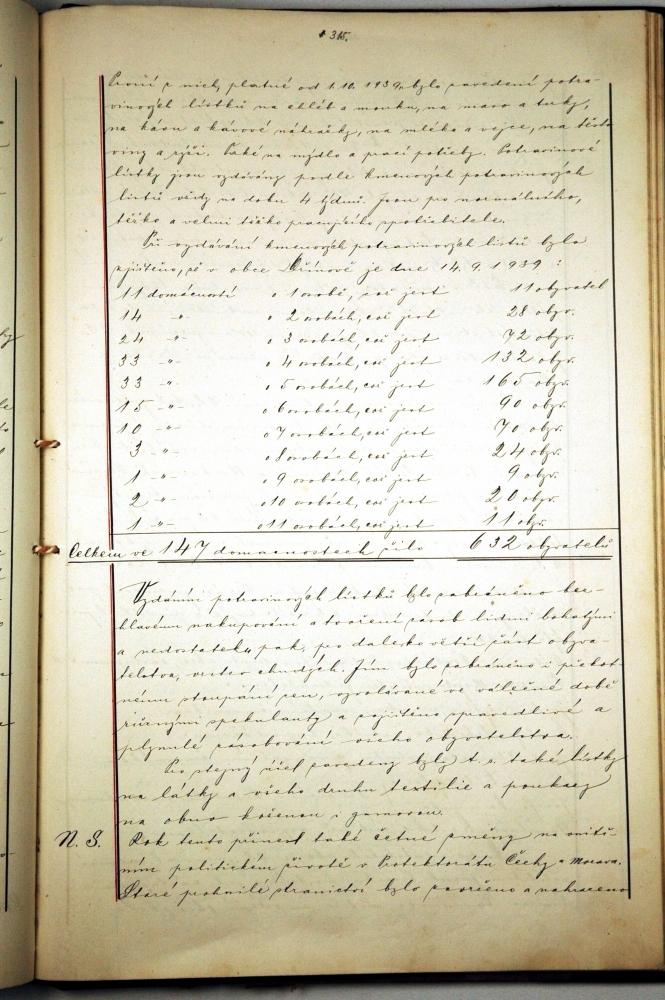 315.
První z nich, platné od 1.10.1939, bylo zavedení potra-
vinových lístků na chléb a mouku, na maso a tuky,
na kávu a kávové náhražky, na mléko a vejce, na těsto
viny a rýži. Také na mýdlo a prací potřeby. Potravinové
lístky jsou vydávány podle kmenových potravinových
listů vždy na dobu 4 týdnů. Jsou pro normálního,
těžko a velmi těžko pracujícího spotřebitele.
Při vydávání kmenových potravinových listů bylo
zjištěno, že v obce Dřínově je dne 14.9.1939:
11 domácností o 1 osobě, což jest 11 obyvatel
14 -"- o 2 osobách, což jest 28 obyv.
24 -"- o 3 osobách, což jest 72 obyv.
33 -"- o 4 osobách, což jest 132 obyv.
33 -"- o 5 osobách, což jest 165 obyv.
15 -"- o 6 osobách, což jest 90 obyv.
10 -"- o 7 osobách, což jest 70 obyv.
3 -"- o 8 osobách, což jest 24 obyv.
1 -"- o 9 osobách, což jest 9 obyv.
2 -"- o 10 osobách, což jest 20 obyv.
1 -"- o 11 osobách, což jest 11 obyv.
Celkem ve 147 domácnostech žilo 632 obyvatelů
Vydáním potravinových lístků bylo zabráněno bez-
hlavému nakupování a tvoření zásob lidmi bohatými
a nedostatek pak pro daleko větší část obyva-
telstva, vrstev chudých. Tím bylo zabráněno i
stoupání cen, vyvolávané ve válečné době
různými spekulanty a zajištěno spravedlivé a
plynulé zásobování všeho obyvatelstva.
Pro stejný účel zavedeny byly t. r. také lístky
na látky a všeho druhu textilie a poukazy
na obuv koženou i gumovou.
N. S. Rok tento přinesl také četné změny na vnitř-
ním politickém životě v Protektorátu Čechy a Morava.
Staré prohnilé stranictví bylo zavrženo a nahrazeno